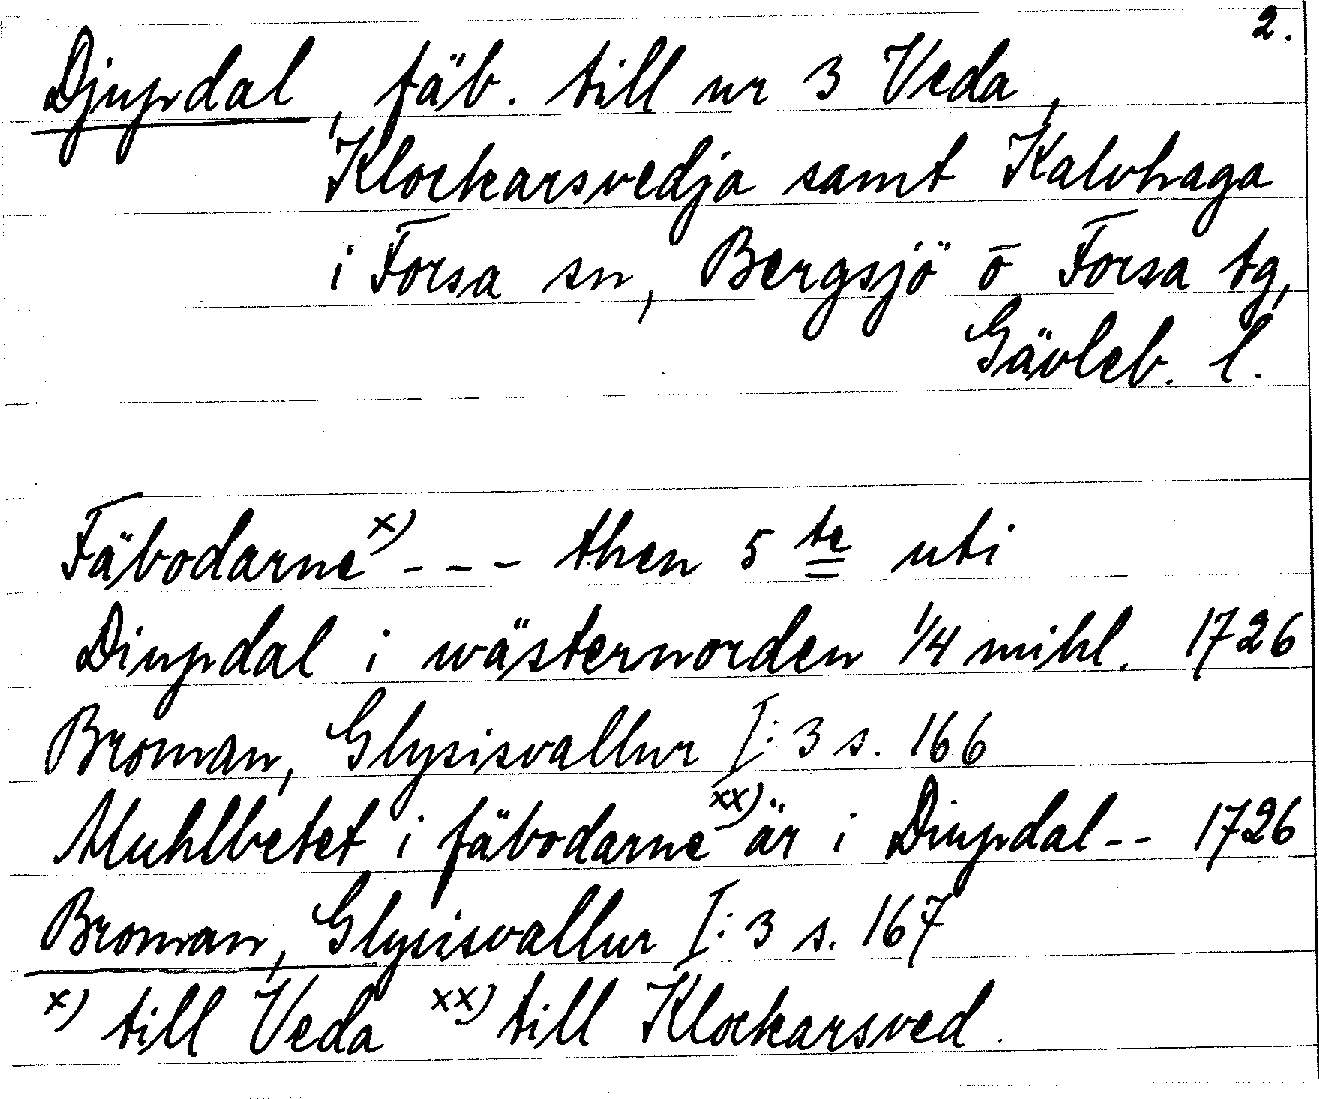 2.
Djupdal, fäb. till nr 3 Veda,
Klockarsvedja samt Kalvhaga
i Forsa sn, Bergsjö o Forsa tg,
Gävleb. l.
Fäbodarne x) - - - then 5 te uti
Diupdal i wästernorden 1/4 mihl. 1726
Broman, Glysisvallur I:3 s. 166
Muhlbetet i fäbodarne xx) är i Diupdal -- 1726
Broman, Glysisvallur I:3 s. 167
x) till Veda xx) till Klockarsved.